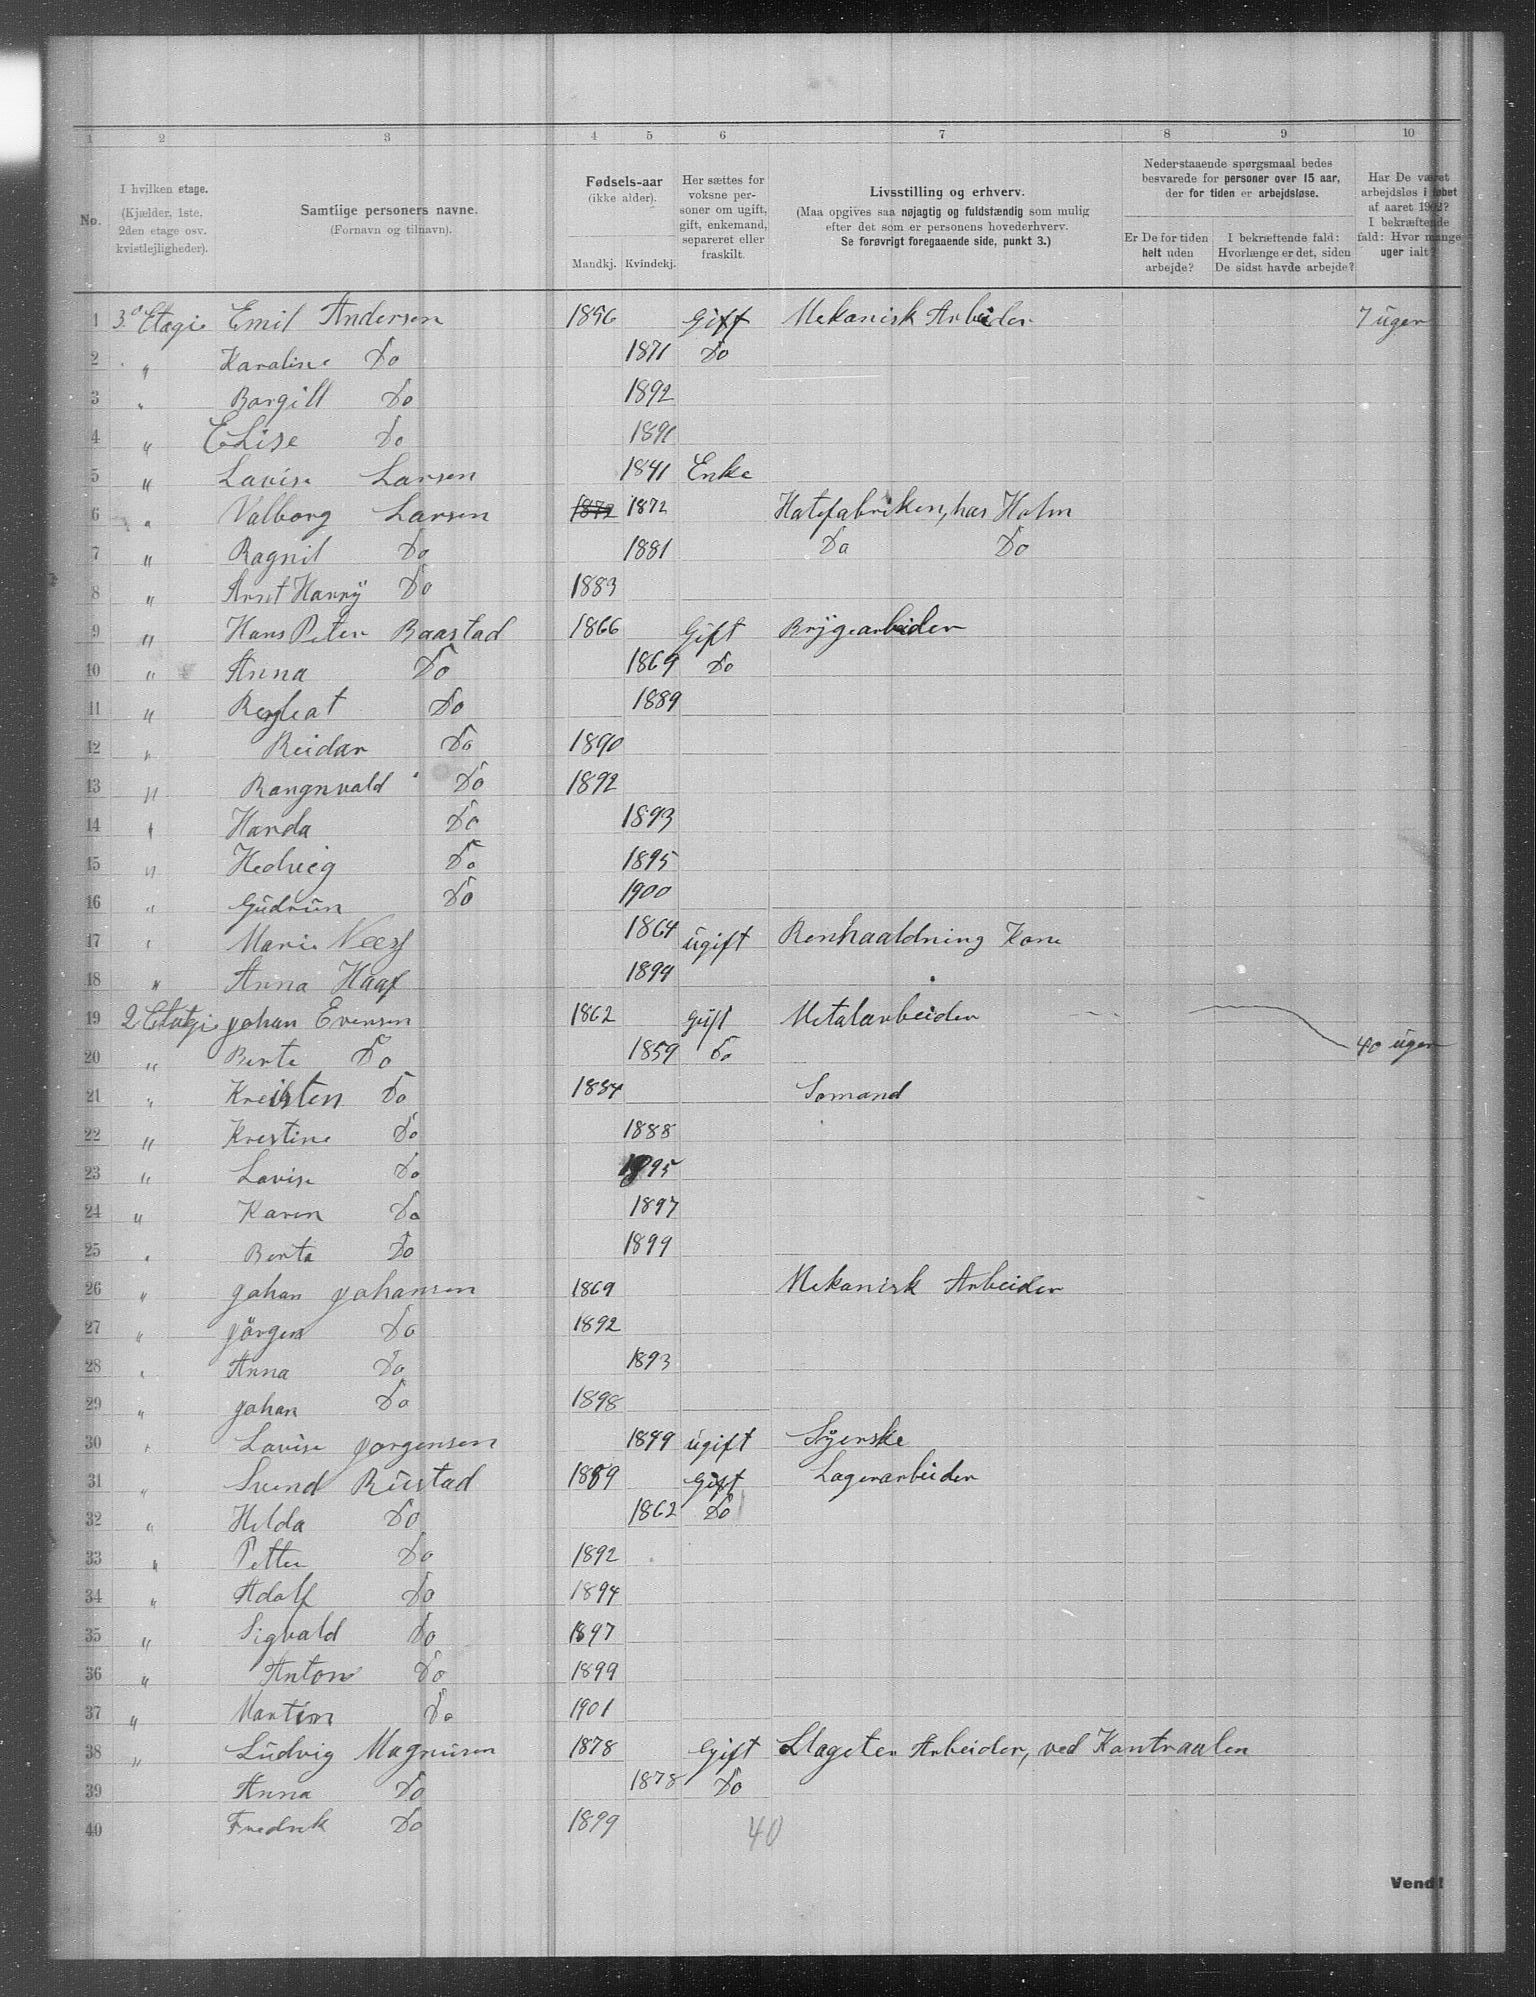 1 2 3 4 5 6 7 8 9 10
No.
I hvilken etage.
(Kjælder, 1ste,
2den etage osv.
kvistlejligheder).
Samtlige personers navne.
(Fornavn og tilnavn).
Fødsels-aar
(ikke alder).
Mandkj. Kvindekj.
Her sættes for
voksne per-
soner om ugift,
gift, enkemand,
separeret eller
fraskilt.
Livsstilling og erhverv.
(Maa opgives saa nøjagtig og fuldstændig som mulig
efter det som er personens hovederhverv.
Se forøvrigt foregaaende side, punkt 3.)
Nederstaaende spørgsmaal bedes
besvarede for personer over 15 aar,
der for tiden er arbejdsløse.
Er De for tiden
helt uden
arbejde?
I bekræftende fald:
Hvorlænge er det, siden
De sidst havde arbejde?
Har De været
arbejdsløs i løbet
af aaret 1902?
I bekræftende
fald: Hvor mange
uger ialt?
1 3. Etagi Emil Andersen 1896 Gift Mekanisk Arbeider 7 uger
2 " Karaline Do 1871 Do
3 " Borgill Do 1892
4 " Elise Do 1891
5 " Lavise Larsen 1841 Enke
6 " Valborg Larsen 1872 1872 Hatefabriken, has Holm
7 " Ragnil Do 1881 Do Do
8 " Harry Do 1883
9 " Hans Peter Baastad 1866 Gift Brygearbeider
10 " Anna Do 1869 Do
11 " Do 1889
12 " Reidar Do 1890
13 " Rangnvald Do 1892
14 " Handa Do 1893
15 " Hedvig Do 1895
16 " Gudrun Do 1900
17 " Marie 1864 ugift Renhaaldning Kone
18 " Anna Haaf 1899
19 2 Etagi Johan Evensen 1862 Gift Metalarbeider
20 " Berte Do 1859 Do 40 uger
21 " Kreisten Do 1884 Somand
22 " Krestine Do 1888
23 " Lavise Do 1895
24 " Karen Do 1897
25 " Berta Do 1899
26 " Johan Johansen 1869 Mekanisk Arbeider
27 " Jörgen Do 1892
28 " Anna Do 1893
29 " Johan Do 1898
30 " Lavise Jorgensen 1899 ugift Syerske
31 " Svend Rustad 1889 Gift Lagerarbeider
32 " Helda Do 1862 Do
33 " Petter Do 1892
34 " Adolf Do 1894
35 " Sigvald Do 1897
36 " Anton Do 1899
37 " Martin Do 1901
38 " Ludvig Magnusen 1878 Gift Slageter Arbeider, ved Kontraalen
39 Anna Do 1878 Do
40 Fredrik Do 1899
40
Vend!